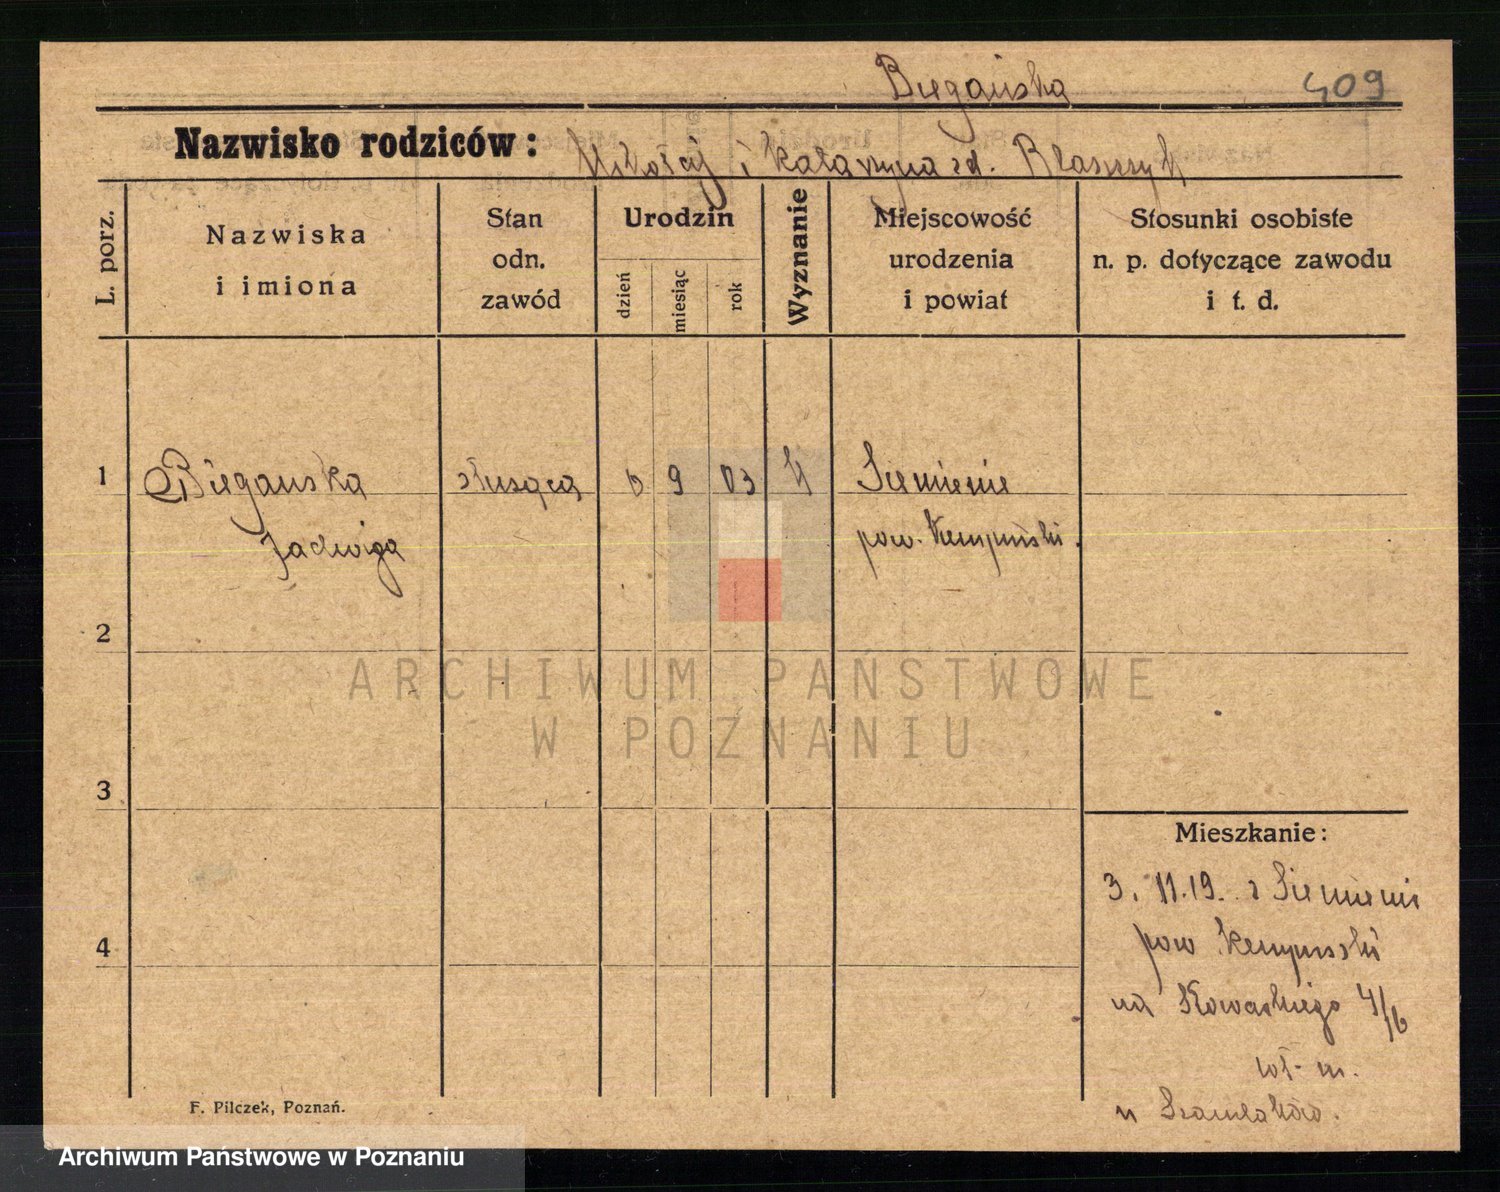 Biegańska
409
Nazwisko rodziców: Mikołaj i Katarzyna zd. Błaszczyk
L. porz.
Nazwiska
i imiona
Stan
odn.
zawód
Urodzin
dzień
miesiąc
rok
Wyznanie
Miejscowość
urodzenia
i powiat
Stosunki osobiste
n. p. dotyczące zawodu
i t. d.
1 Biegańska służąca 6 9 03 Siemienie
Jadwiga pow. Kempiński.
2
3
4
Mieszkanie:
3. 11.19. z Siemieni
pow Kempiński
na 4/6
u
F. Pilczek, Poznań.
ARCHIWUM PAŃSTWOWE
W POZNANIU
Archiwum Państwowe w Poznaniu